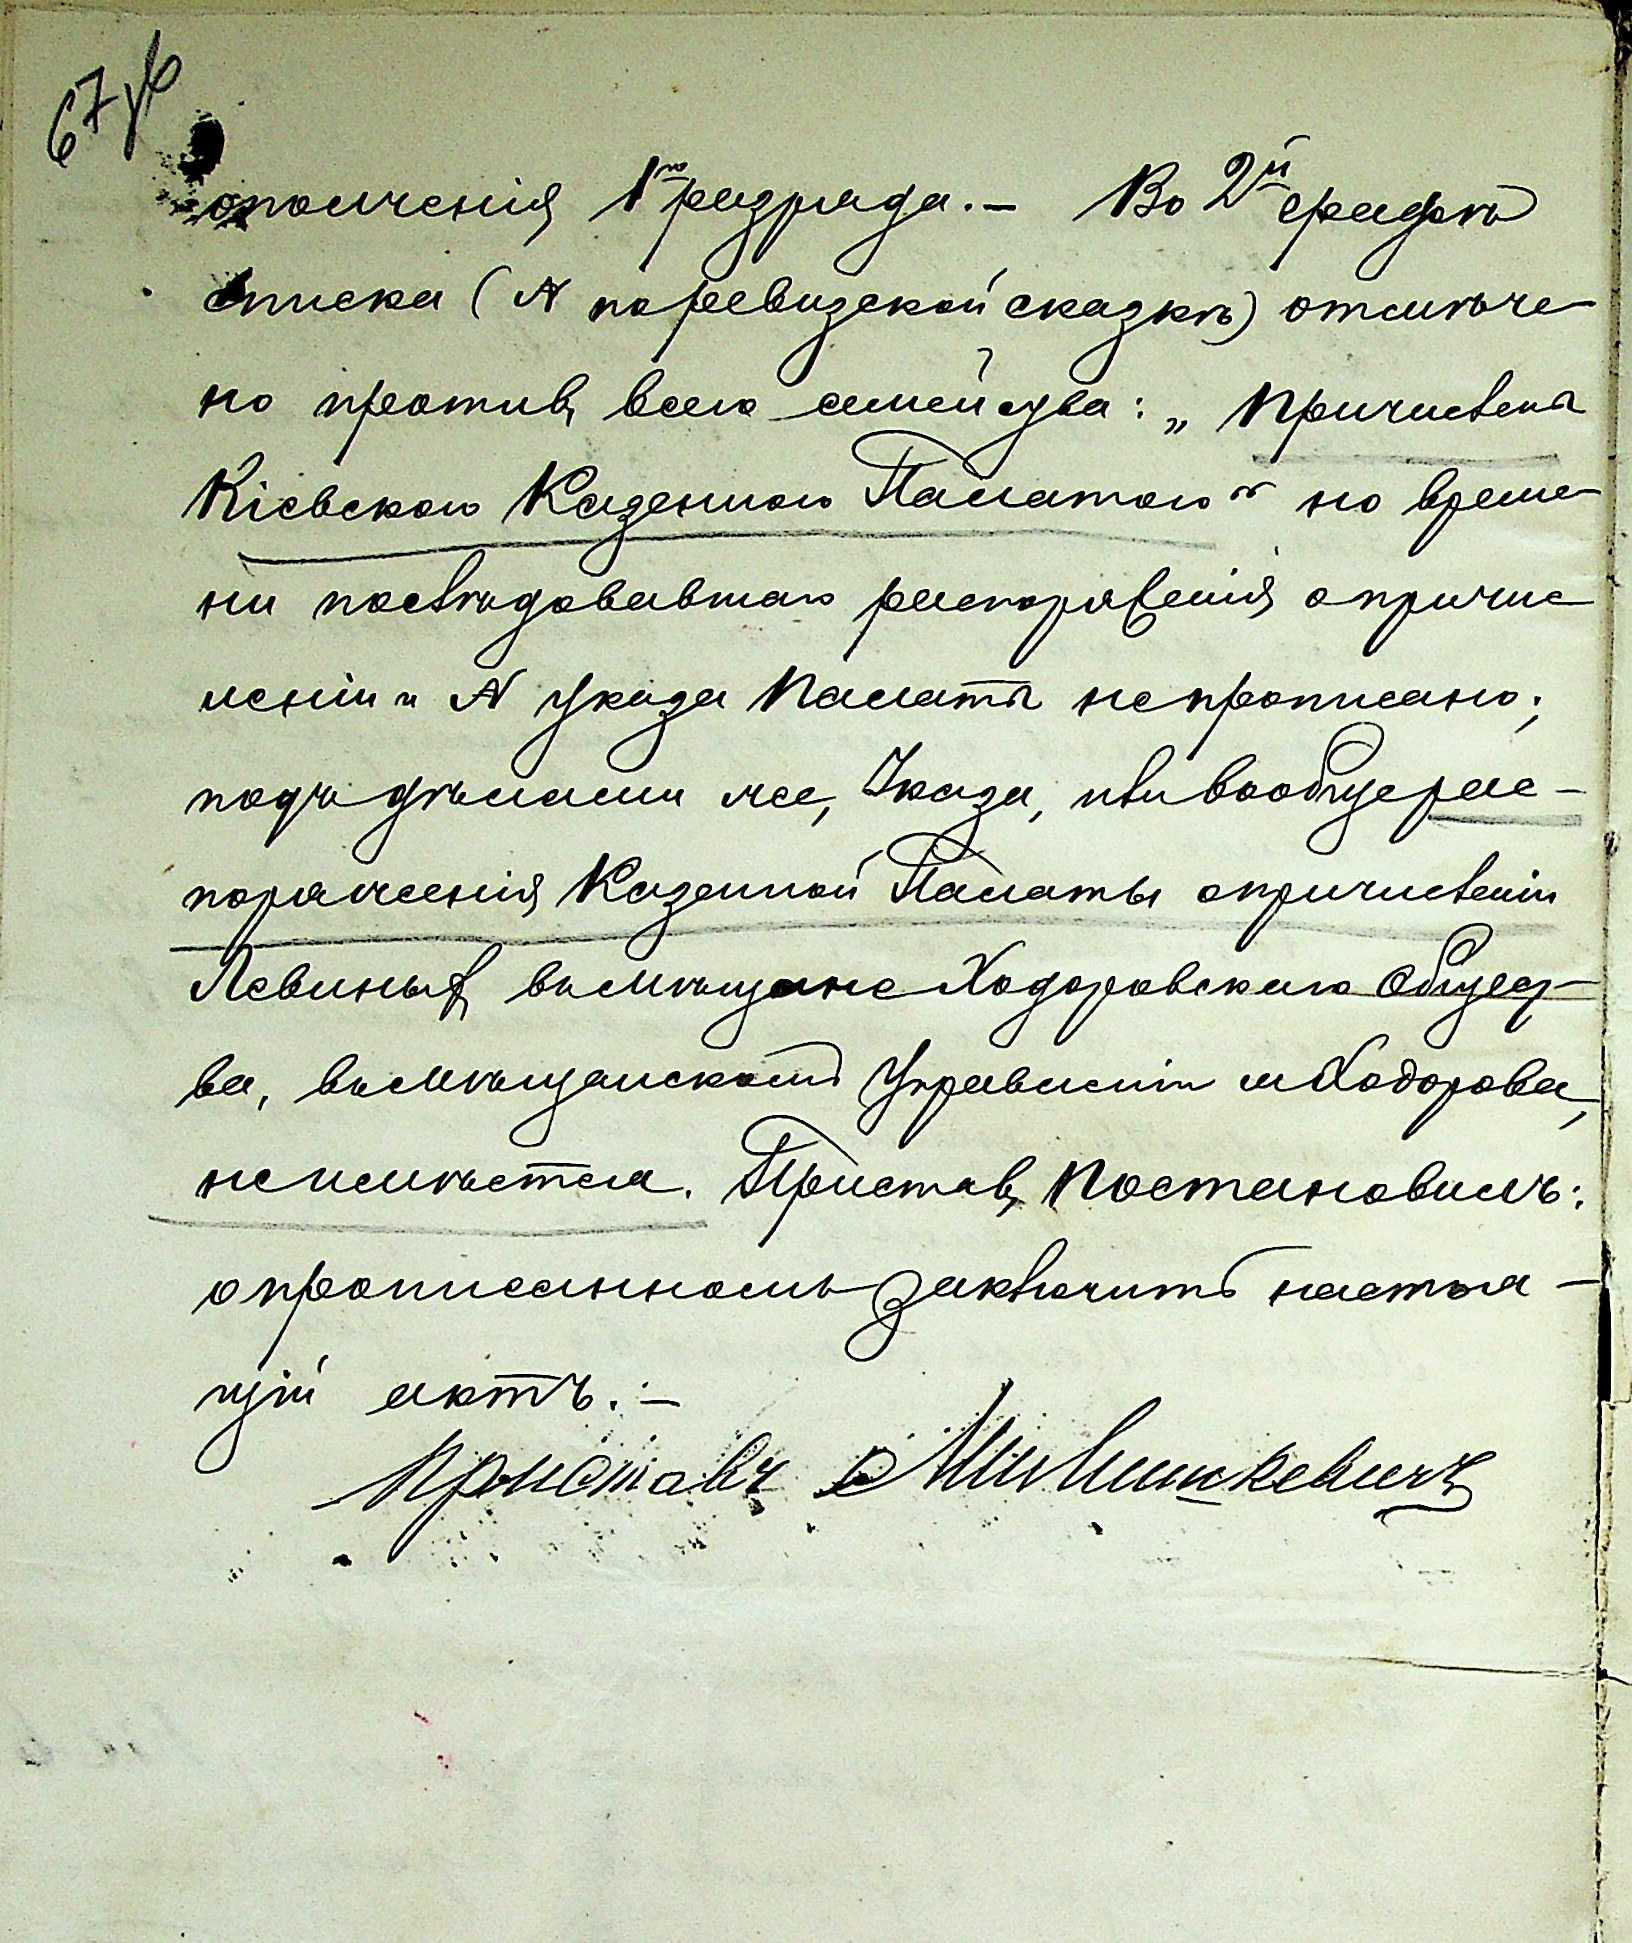 67 об
ополченія 1го разряда. — Во 2й графѣ
списка (№ по ревизской сказкѣ) отмѣче-
но противъ всего семейства: „Причислены
Кіевскою Казенною Палатою“ но време-
ни послѣдовавшаго распоряженія о причис
леніи и № указа Палаты не прописано;
подъ дѣлами же, Указа, или вообще рас-
поряженія Казенной Палаты о причисленіи
Левиныхъ въ мѣщане Ходоровскаго Общест-
ва, въ Мѣщанскомъ Управленіи м Ходорова,
не имѣется. Приставъ Постановилъ:
о прописанномъ заключить настоя-
щій актъ. —
Приставъ